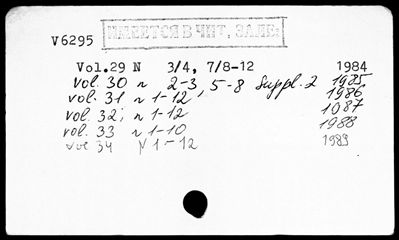 ИМЕЕТСЯ В ЧИТ. ЗАЛЕ
V6295
Vol.29 N 3/4, 7/8-12 1984
vol. 30 n 2-3, 5-8 Suppl. 2 1985
vol. 31 n 1-12 1986
vol. 32; n 1-12 1987
vol. 33 n 1-10 1988
vol 34 N 1-12 1989